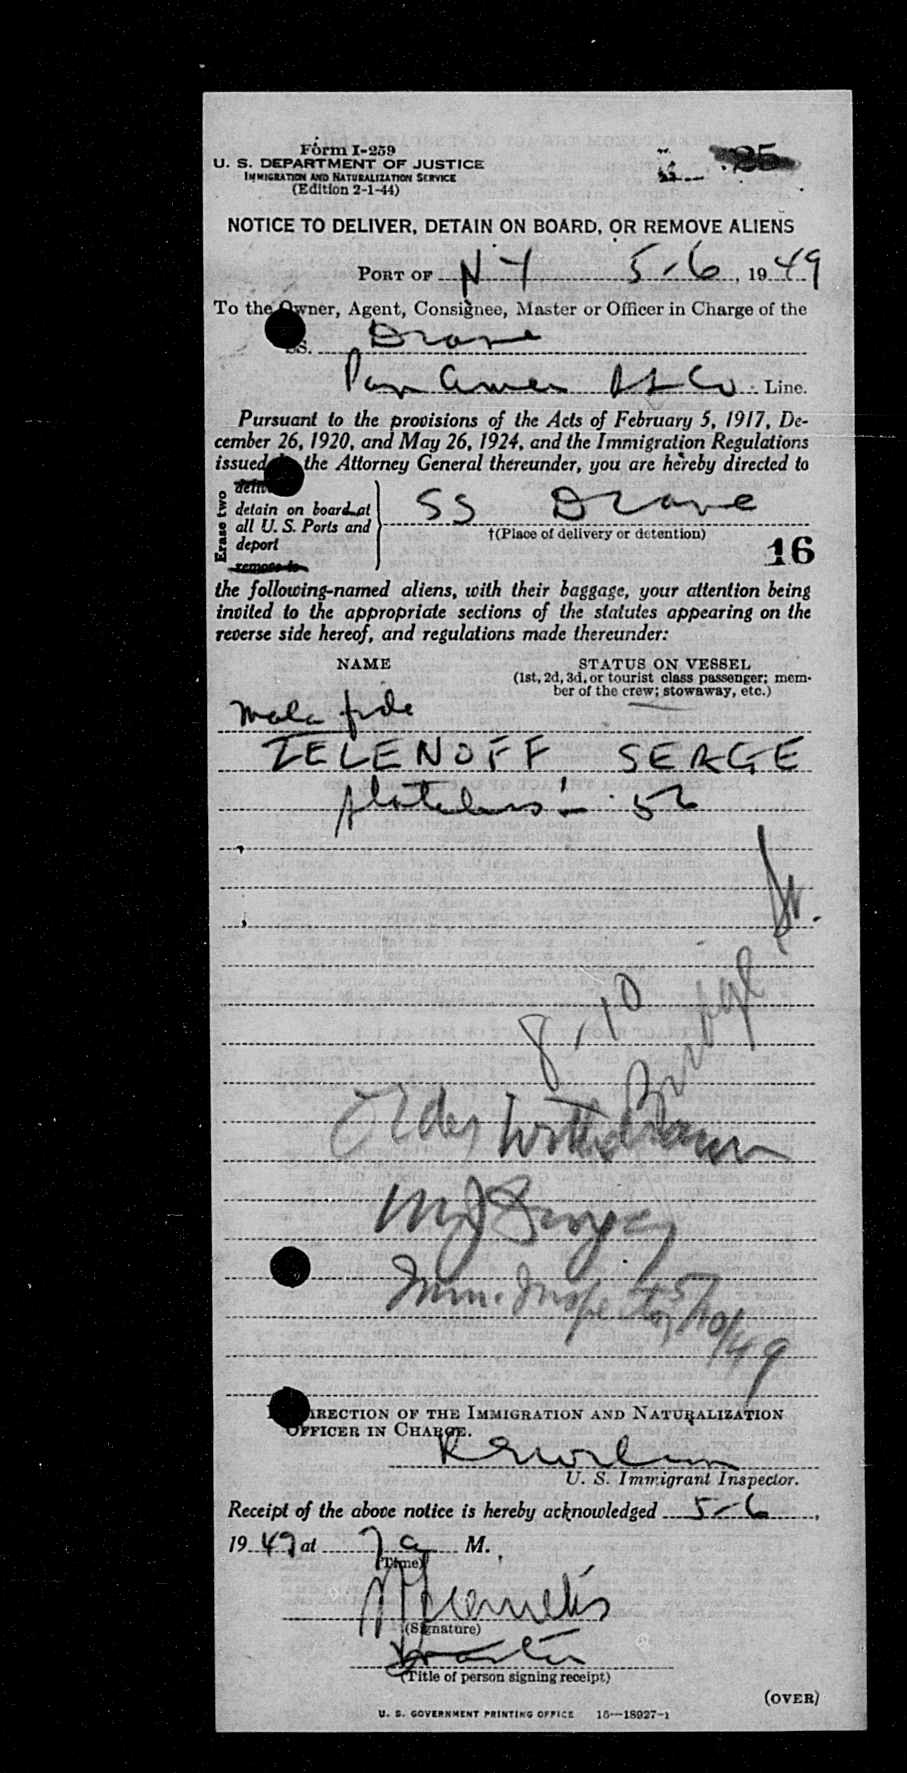 Form I-259
U. S. DEPARTMENT OF JUSTICE
IMMIGRATION AND NATURALIZATION SERVICE
(Edition 2-1-44)
25
NOTICE TO DELIVER, DETAIN ON BOARD, OR REMOVE ALIENS
PORT OF N Y 5-6, 1949
To the Owner, Agent, Consignee, Master or Officer in Charge of the
SS. Drane
Pan Amer SS Co Line.
Pursuant to the provisions of the Acts of February 5, 1917, De-
cember 26, 1920, and May 26, 1924, and the Immigration Regulations
issued the Attorney General thereunder, you are hereby directed to
Erase two
deliver
detain on board at
all U. S. Ports and
deport
remove to
SS Drane
†(Place of delivery or detention)
16
the following-named aliens, with their baggage, your attention being
invited to the appropriate sections of the statutes appearing on the
reverse side hereof, and regulations made thereunder:
NAME STATUS ON VESSEL
(1st, 2d, 3d, or tourist class passenger; mem-
ber of the crew; stowaway, etc.)
mala fide
ZELENOFF SERGE
stateless - 52
8-10 Bridge St.
Order Withdrawn
Imm. Inspector 5/10/49
DIRECTION OF THE IMMIGRATION AND NATURALIZATION
OFFICER IN CHARGE.
U. S. Immigrant Inspector.
Receipt of the above notice is hereby acknowledged 5-6,
1949 at 7 a M.
(Time)
(Signature)
Master
(Title of person signing receipt)
(OVER)
U. S. GOVERNMENT PRINTING OFFICE 16—18927-1